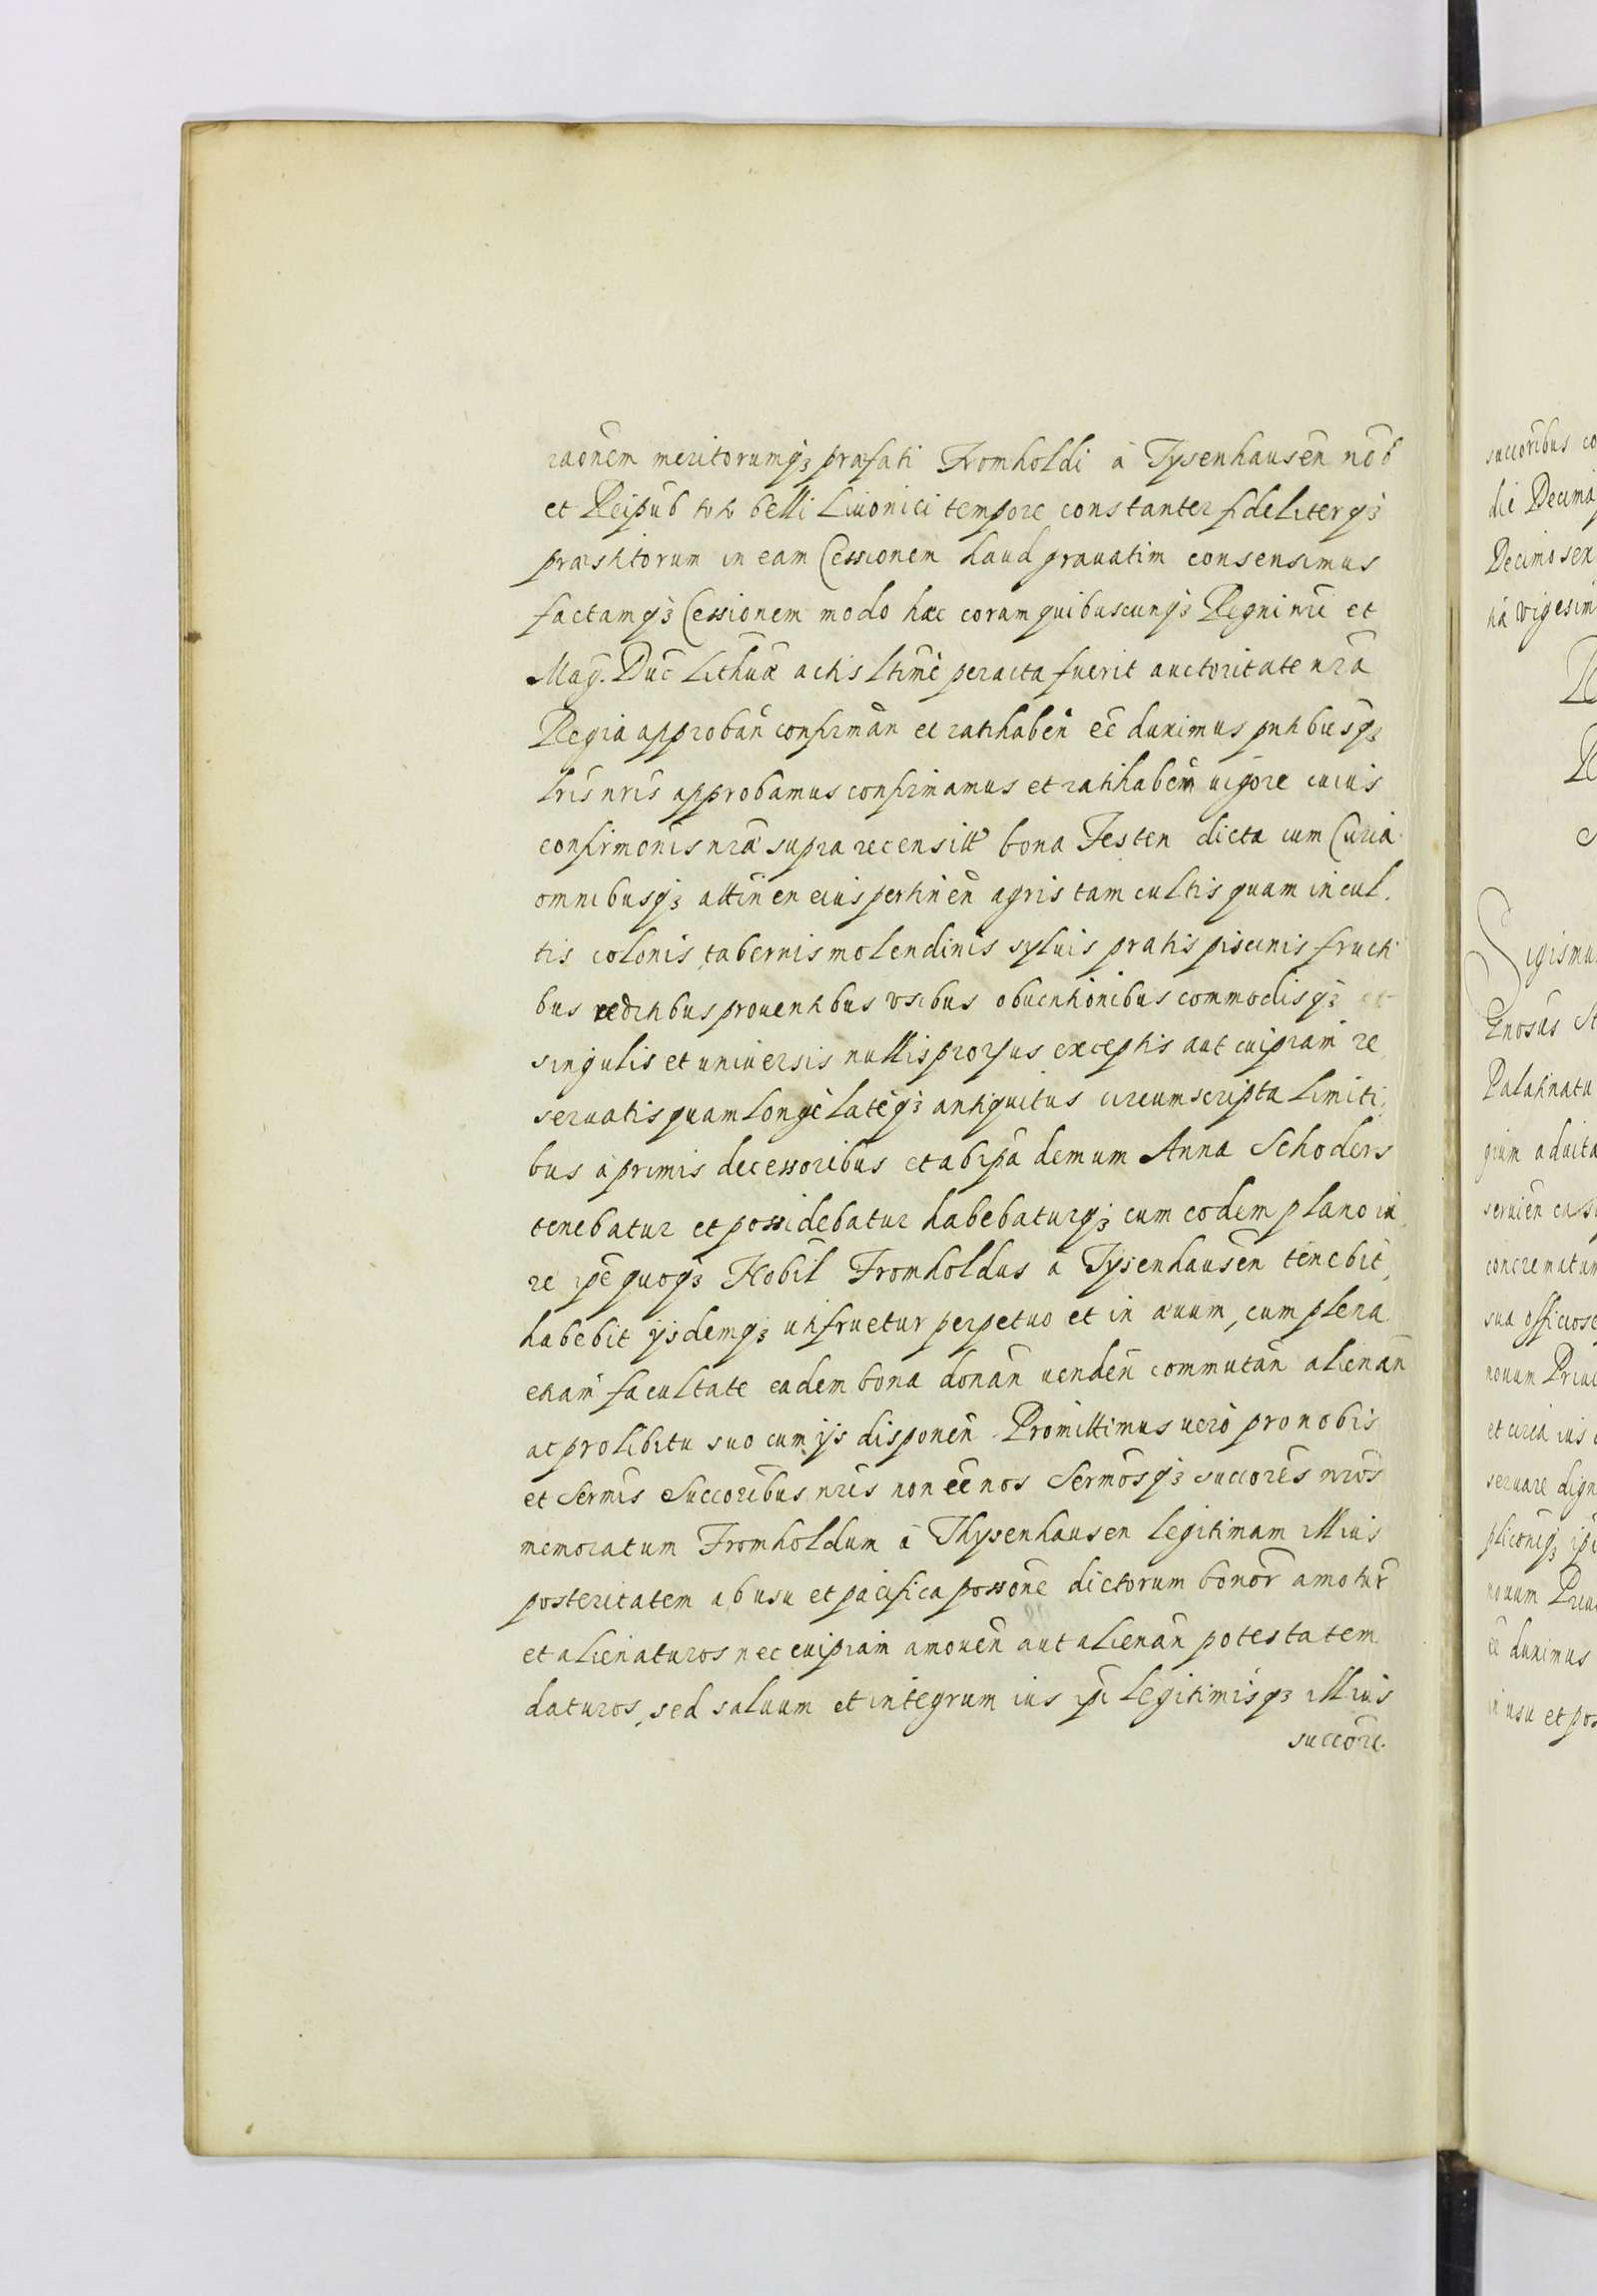 raōnem meritorumqꝫ præfati Fromholdi à Tysenhausen̄ nōb
et Reipub̄ toto belli Liuonici tempore constanter fideliterqꝫ
præstitorum in eam Cessionem haud grauatim consensimus
factamqꝫ Cessionem modo hæc coram quibuscunqꝫ Regni nr̄i et
Mag. Duc̄ Lithuæ actis ltimè peracta fuerit auctoritate nr̄a
Regia approban̄ confirman̄ et ratihaben̄ eē duximus pn̄tibusqꝫ
lr̄is nr̄is approbamus confirmamus et ratihabem̄ uigore cuius
confirmōnis nr̄æ supra recensita bona Festen dicta cum Curia
omnibusqꝫ attinen eius pertinen̄ agris tam cultis quam incul.
tis colonis tabernis molendinis syluis pratis piscinis fructi
bus reditibus prouentibus vsibus obuentionibus commodisqꝫ et
singulis et uniuersis nullis prorsus exceptis aut cuipiam re
seruatis quam longè latèqꝫ antiquitus circumscripta limiti,
bus à primis decessoribus et ab ip̄a demum Anna Schoders
tenebatur et possidebatur habebaturqꝫ cum eodem plano iu
re ip̄e quoqꝫ Nobil Fromholdus à Tysenhausen̄ tenebit,
habebit ysdemqꝫ utifruetur perpetuo et in æuum, cum plena
etiam̄ facultate eadem bona donan̄ uenden̄ commutan̄ alienan̄
ac pro libitu suo cum ijs disponen̄ Promittimus uerò pro nobis
et Serm̄is Succoribus nr̄is non eē nos Serm̄osqꝫ succor̄es nr̄os
memoratum Fromholdum à Thysenhausen legitimam illius
posteritatem ab usu et pacifica possōne dictorum bonor̄ amotur̄
et alienaturos nec cuipiam amouen̄ aut alienan̄ potestatem
daturos, sed saluum et integrum ius ip̄i legitimisqꝫ illius
succōri.
succōribus co
die Decima
Decimo sex
tia vigesim
Sigismu
Enosus St
Palatinatu
gium aduita
seruien̄
concrematum
sua officiose
nouum Priui
et circa ius
seruare dign
plicōniqꝫ ip̄i
nouum Priui
eē duximus
in usu et pos